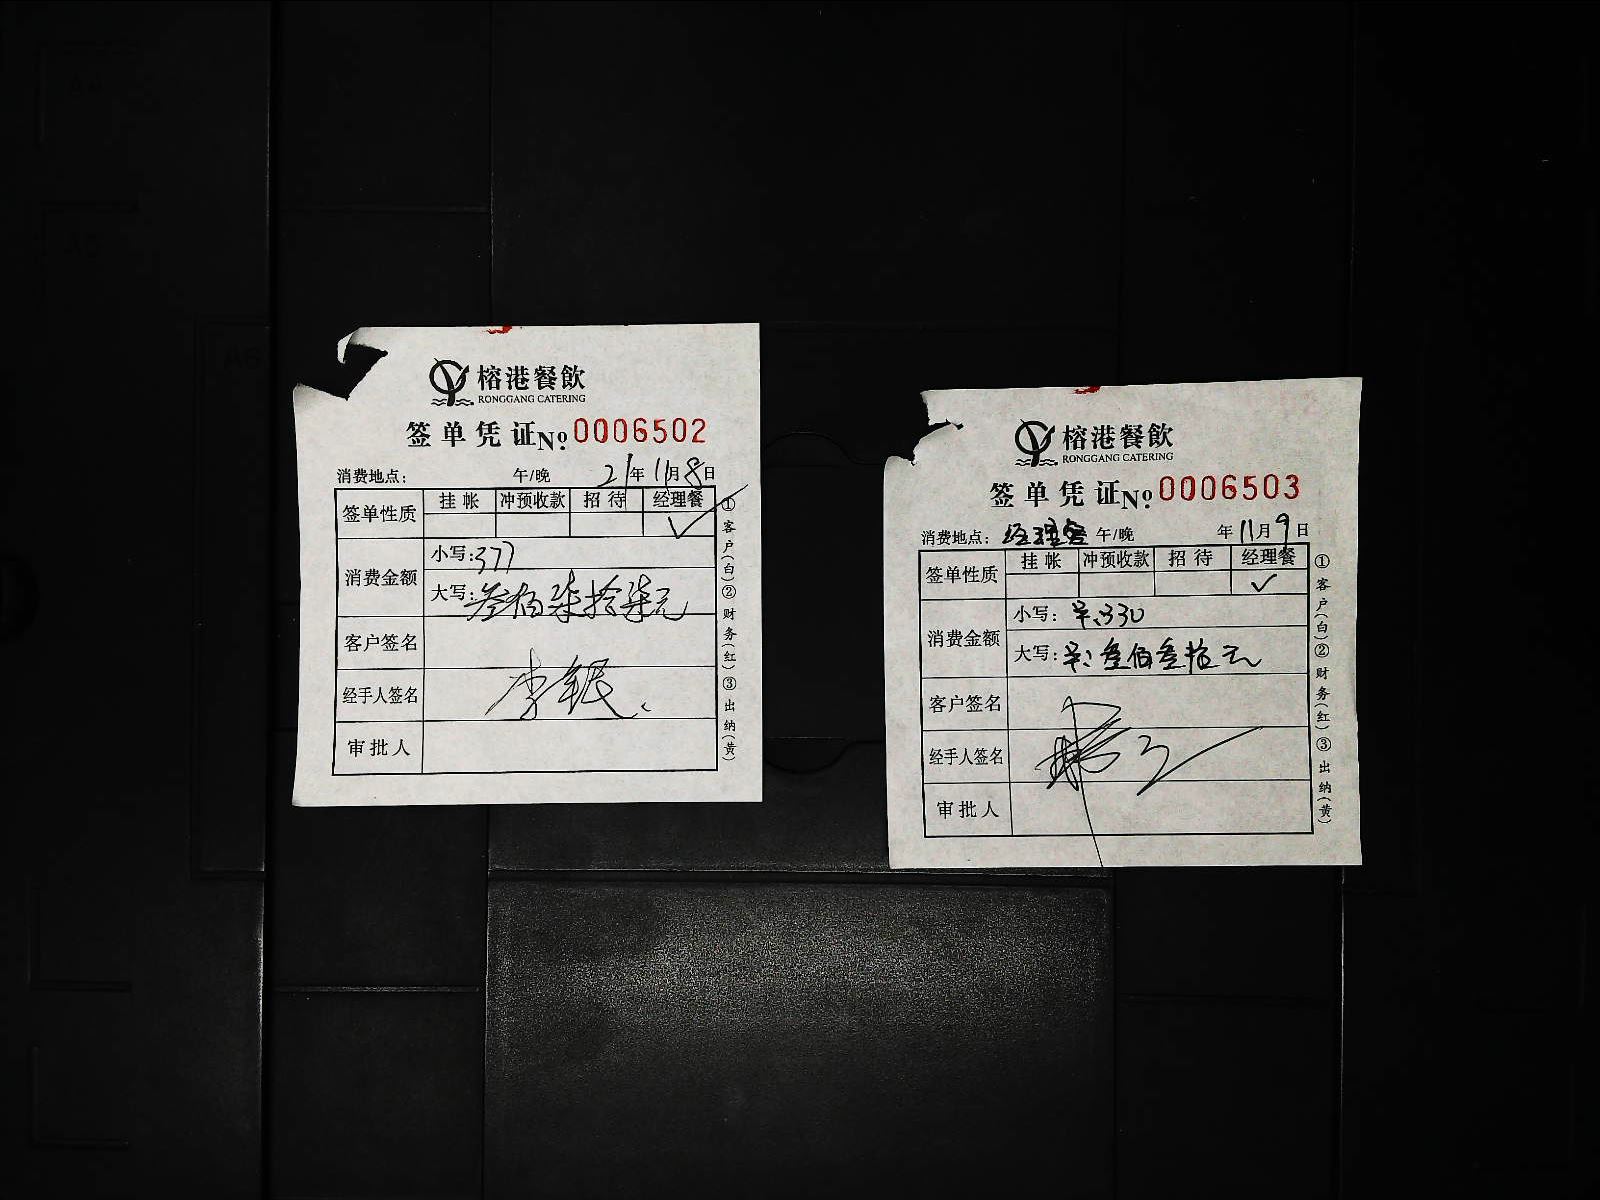 榕港餐飲
RONGGANG CATERING
签单凭证 No. 0006502
消费地点: 午/晚 21年11月8日
签单性质 挂帐 冲预收款 招待 经理餐
✓
消费金额 小写:377
大写:叁佰柒拾柒元
客户签名
经手人签名
审批人
①客户(白)②财务(红)③出纳(黄)
榕港餐飲
RONGGANG CATERING
签单凭证 No. 0006503
消费地点: 经理餐 午/晚 年11月9日
签单性质 挂帐 冲预收款 招待 经理餐
✓
消费金额 小写: 330
大写: 叁佰叁拾元
客户签名
经手人签名
审批人
①客户(白)②财务(红)③出纳(黄)